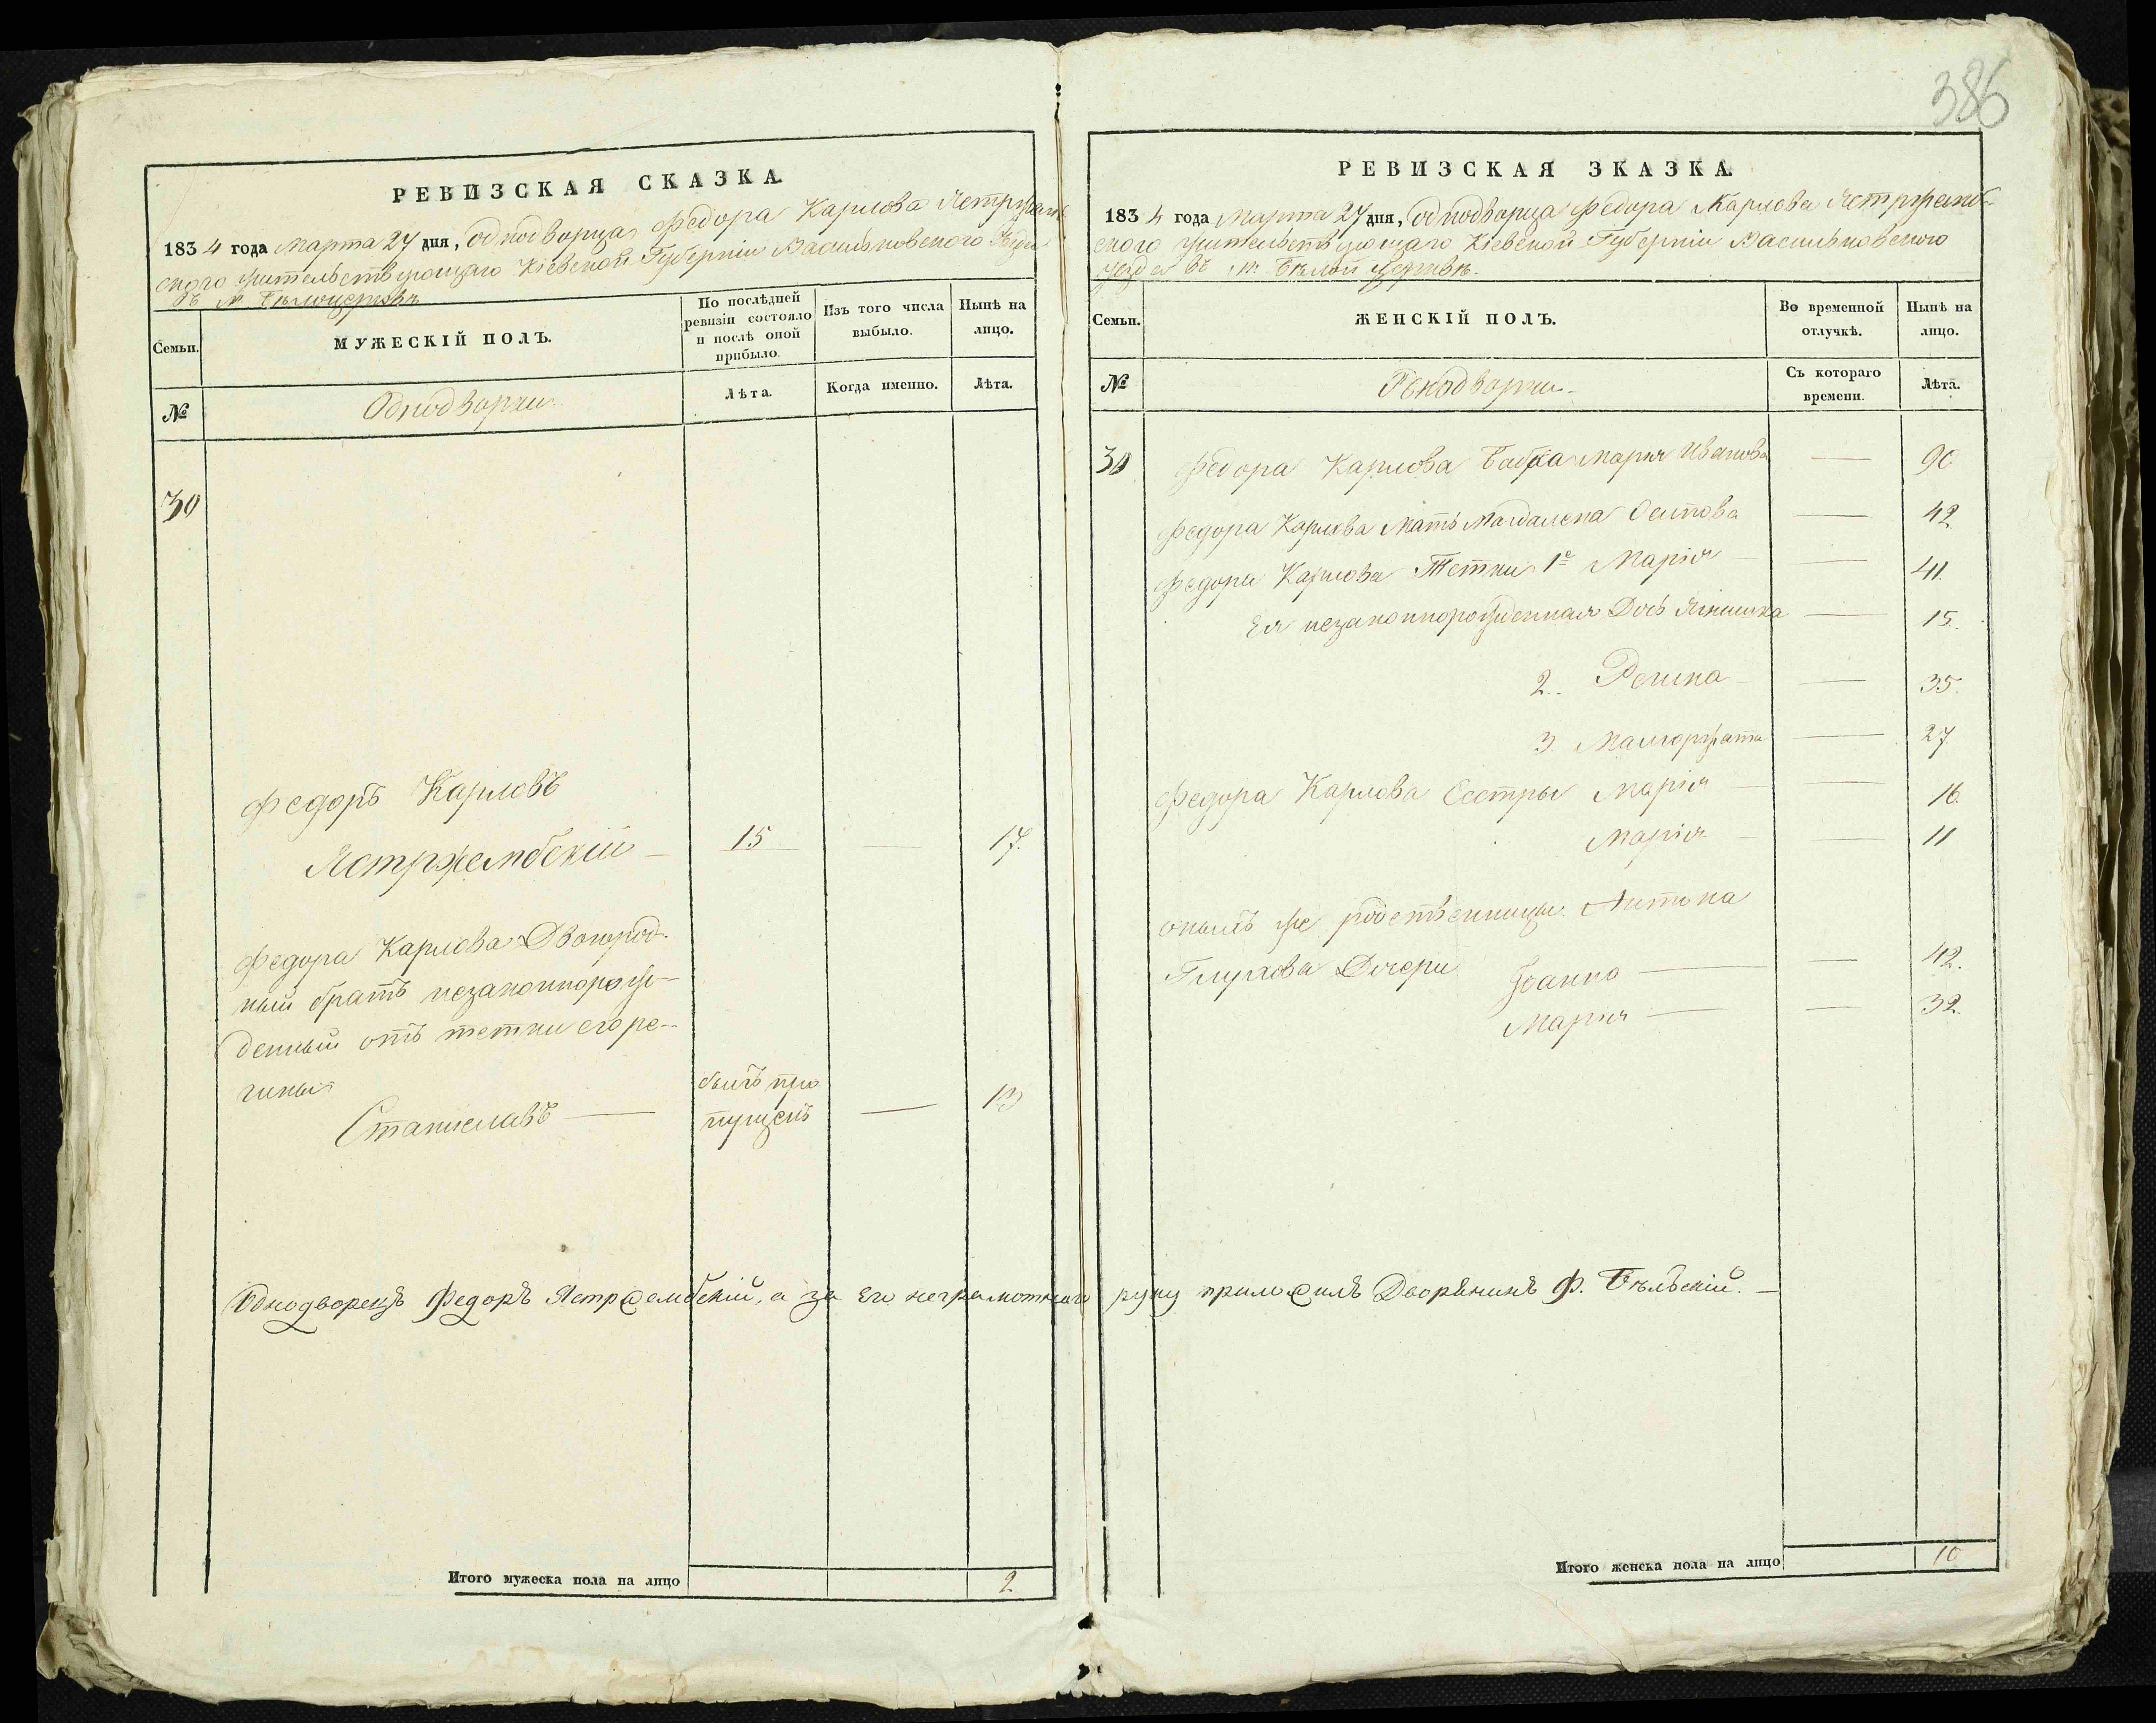 386
РЕВИЗСКАЯ СКАЗКА.
1834 года Марта 24 дня, Однодворца Федора Карлова Ястржемб
скаго жительствующаго Кіевской Губерніи Васильковскаго Уезда
въ м. Белоцеркве
Семьи.
МУЖЕСКІЙ ПОЛЪ.
По послѣдней
ревизіи состояло
и послѣ оной
прибыло.
Изъ того числа
выбыло.
Нынѣ на
лицо.
№
Однодворцы
Лѣта.
Когда именно.
Лѣта.
30
Федоръ Карловъ
Ястржембскій — 15 — 17.
Федора Карлова Двоюрод-
ный братъ незаконнорож-
денный отъ тетки его Ре-
гины
Станиславъ — былъ про
пущенъ — 13
Итого мужеска пола на лицо 2
РЕВИЗСКАЯ ЗКАЗКА.
1834 года Марта 24 дня, Однодворца Федора Карлова Ястржемб-
скаго жительствующаго Кіевской Губерніи Васильковскаго
Уезда въ м. Белой Церкве.
Семьи.
ЖЕНСКІЙ ПОЛЪ.
Во временной
отлучкѣ.
Нынѣ на
лицо.
№
Однодворки
Съ котораго
времени.
Лѣта.
30 Федора Карлова Бабка Марья Иванова — 90
Федора Карлова Мать Магдалена Осипова — 42
Федора Карлова Тетки 1е Марія — 41.
Ея незаконнорожденная Дочь — 15.
2. — 35.
3. Малгоржата — 27.
Федора Карлова Сестры Марія — 16.
Марія — 11
оныхъ же родственницы Антона
Глухова Дочери Іоанна — 42.
Марія — 32.
Однодворецъ Федоръ Ястржембскій, а за его неграмотнаго руку приложилъ Дворянинъ Ф. Бѣльскій. —
Итого женска пола на лицо 10